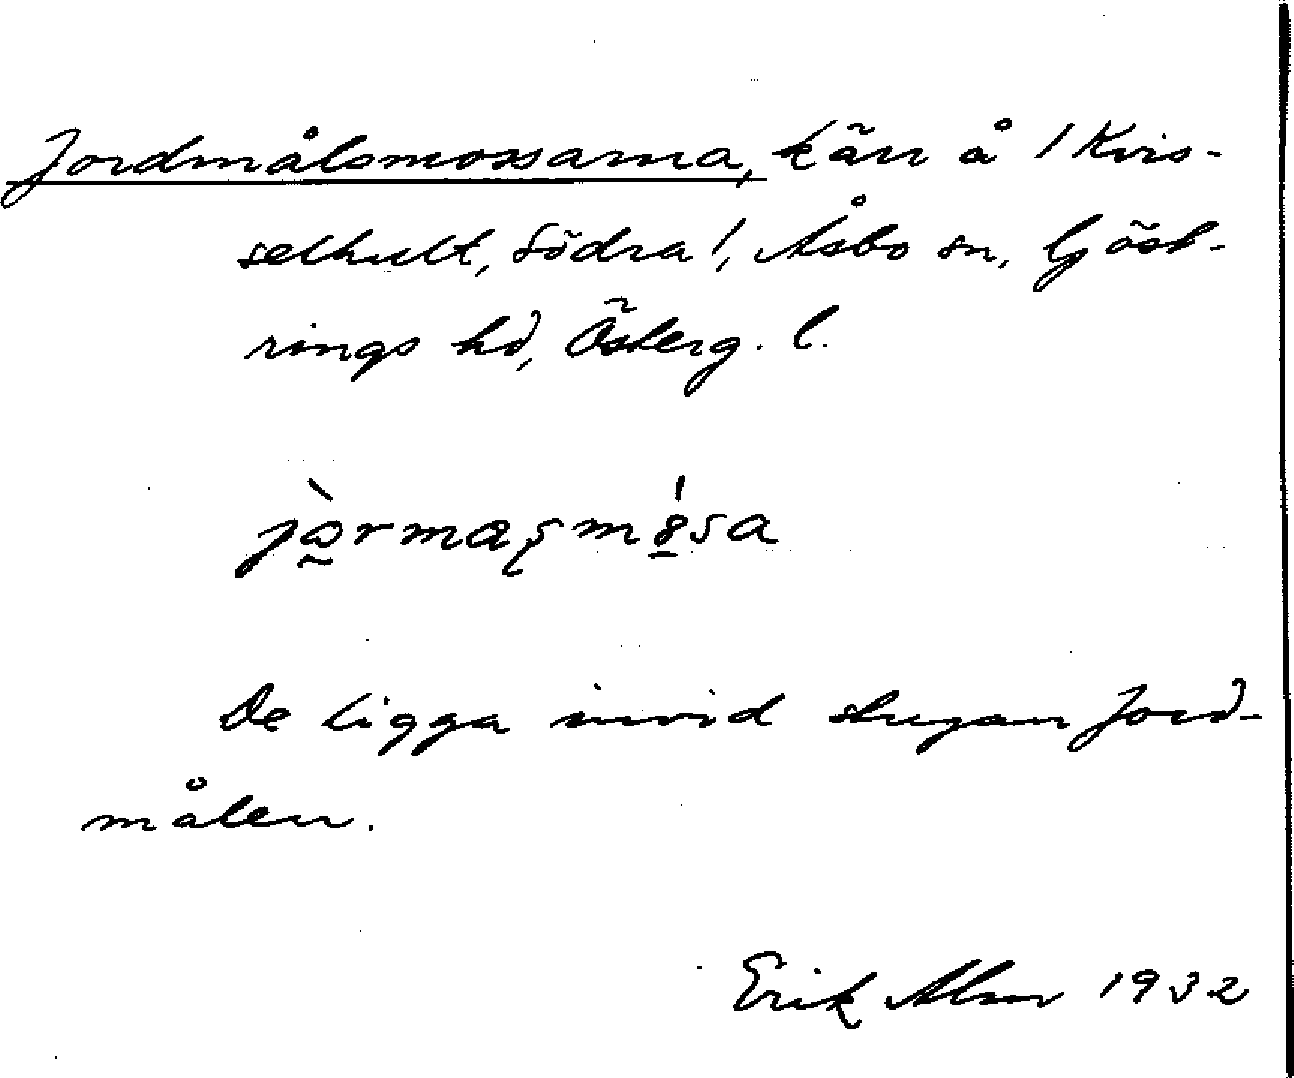 Jordmålsmossarna, kärr å /Kvis-
selhult, Södra/, Åsbo sn, Göst-
rings hd, Österg. l.
De ligga invid stugan Jord-
målen.
Erik Alm 1932